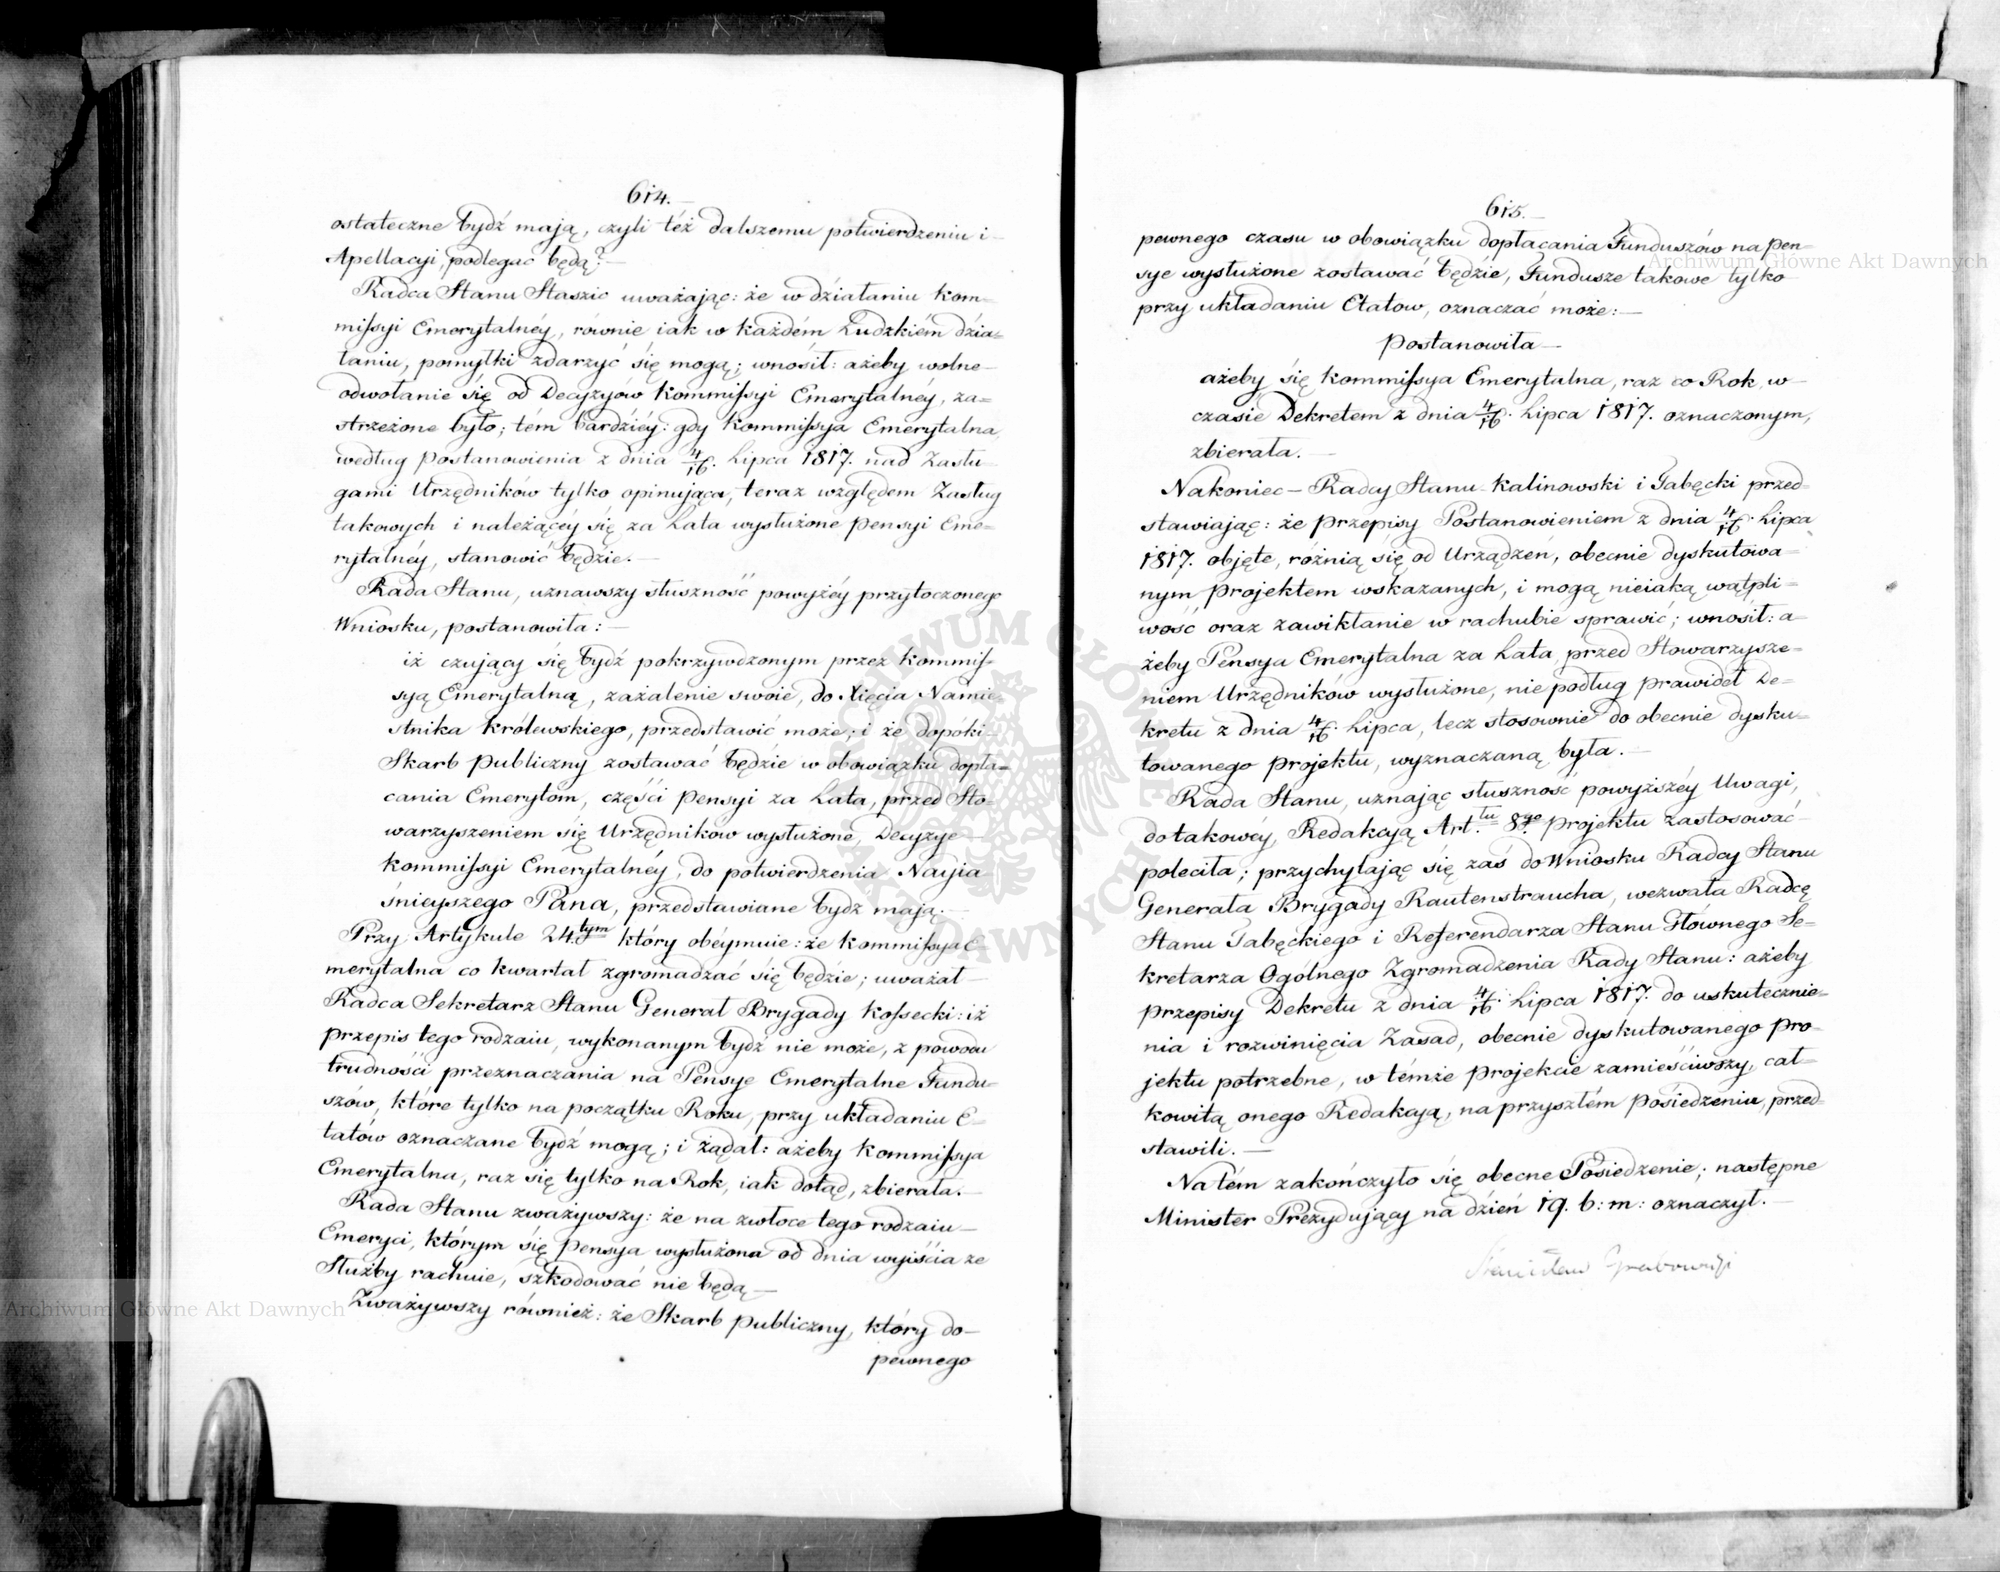 614.
ostateczne bydź mają, czyli też dalszemu potwierdzeniu i
Apellacyi, podlegać będą? —
Radca Stanu Staszic uważaiąc: że w działaniu Kom=
missyi Emerytalnéy, równie iak w każdém ludzkiém dzia=
łaniu, pomyłki zdarzyć się mogą; wnosił: ażeby wolne
odwołanie się od Decyzyów Kommissyi Emerytalnéy, za=
strzeżone było; tém bardziéy: gdy Kommissya Emerytalna
według Postanowienia z dnia 4/16. Lipca 1817. nad Zasłu=
gami Urzędników tylko opiniująca, teraz względem Zasług
takowych i należącéy się za Lata wysłużone Pensyi Eme=
rytalnéy, stanowić będzie. —
Rada Stanu, uznawszy słuszność powyżéy przytoczonego
Wniosku, postanowiła: —
iż czuiący się bydź pokrzywdzonym przez Kommis=
syą Emerytalną, zażalenie swoie, do Xięcia Namie=
stnika Królewskiego, przedstawić może; i że dopóki
Skarb Publiczny zostawać będzie w obowiązku dopła=
cania Emerytom, części Pensyi za Lata, przed Sto=
warzyszeniem się Urzędników wysłużone, Decyzye
Kommissyi Emerytalnéy, do potwierdzenia Nayia
śnieyszego Pana, przedstawiane bydź maią. —
Przy Artykule 24.tym który obéymuie: że Kommissya E=
merytalna co kwartał zgromadzać się będzie; uważał
Radca Sekretarz Stanu Generał Brygady Kossecki: iż
przepis tego rodzaiu, wykonanym bydź nie może, z powodu
trudności przeznaczania na Pensye Emerytalne Fundu=
szów, które tylko na początku Roku, przy układaniu E=
tatów oznaczane bydź mogą; i żądał: ażeby Kommissya
Emerytalna, raz się tylko na Rok, iak dotąd, zbierała. —
Rada Stanu zważywszy: że na zwłoce tego rodzaiu
Emeryci, którym się Pensya wysłużona od dnia wyiścia ze
Służby rachuie, szkodować nie będą —
Zważywszy również: że Skarb Publiczny, który do
pewnego
615.
pewnego czasu w obowiązku dopłacania Funduszów na Pen=
sye wysłużone zostawać będzie, Fundusze takowe tylko
przy układaniu Etatów, oznaczać może: —
Postanowiła —
ażeby się Kommissya Emerytalna, raz co Rok, w
czasie Dekretem z dnia 4/16. Lipca 1817. oznaczonym,
zbierała. —
Nakoniec — Radcy Stanu Kalinowski i Gabęcki przed=
stawiaiąc: że przepisy Postanowieniem z dnia 4/16. Lipca
1817. obięte, różnią się od Urządzeń, obecnie dyskutowa=
nym Projektem wskazanych, i mogą nieiaką wątpli=
wość oraz zawikłanie w rachubie sprawić; wnosił: a=
żeby Pensya Emerytalna za Lata, przed Stowarzysze=
niem Urzędników wysłużone, nie podług prawideł De=
kretu z dnia 4/16. Lipca, lecz stosownie do obecnie dysku=
towanego projektu, wyznaczaną była. —
Rada Stanu, uznaiąc słuszność powyższéy Uwagi,
do takowéy, Redakcyą Art.tu 8go Projektu zastosować
poleciła; przychylaiąc się zaś do Wniosku Radcy Stanu
Generała Brygady Rautenstraucha, wezwała Radcę
Stanu Gabęckiego i Referendarza Stanu Głównego Se=
kretarza Ogólnego Zgromadzenia Rady Stanu: ażeby
przepisy Dekretu z dnia 4/16. Lipca 1817. do uskutecznie=
nia i rozwinięcia Zasad, obecnie dyskutowanego pro=
jektu potrzebne, w témże projekcie zamieściwszy, cał=
kowitą onego Redakcyą, na przyszłém Posiedzeniu, przed=
stawili. —
Na tém zakończyło się obecne Posiedzenie; następne
Minister Prezyduiący na dzień 19. b: m: oznaczył. —
Stanisław Grabowski
Archiwum Główne Akt Dawnych
Archiwum Główne Akt Dawnych
ARCHIWUM GŁÓWNE AKT DAWNYCH